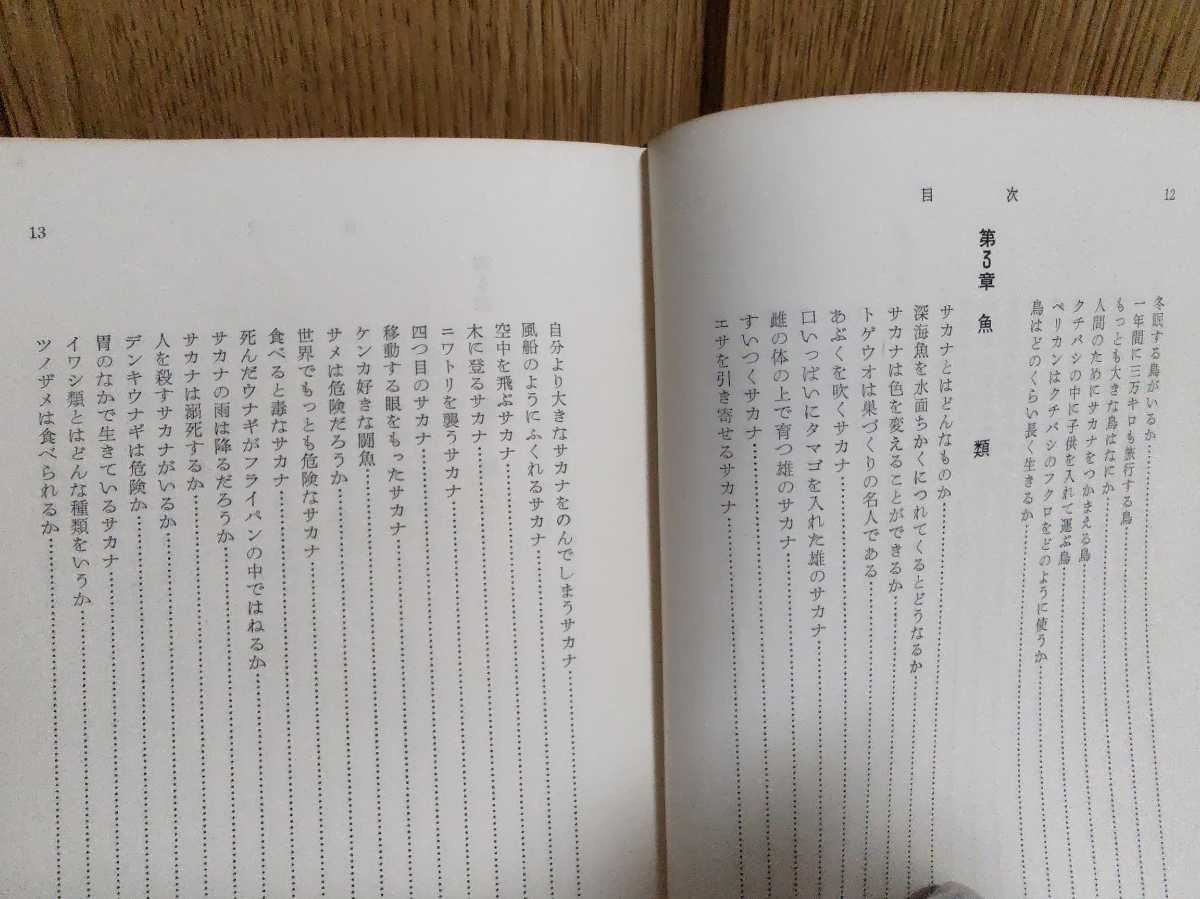 12
目次
冬眠する鳥がいるか
一年間に三万キロも旅行する鳥
もっとも大きな鳥はなにか
人間のためにサカナをつかまえる鳥
クチバシの中に子供を入れて運ぶ鳥
ペリカンはクチバシのフクロをどのように使うか
鳥はどのくらい長く生きるか
第3章 魚類
サカナとはどんなものか
深海魚を水面ちかくにつれてくるとどうなるか
サカナは色を変えることができるか
トゲウオは巣づくりの名人である
あぶくを吹くサカナ
口いっぱいにタマゴを入れた雄のサカナ
雌の体の上で育つ雄のサカナ
すいつくサカナ
エサを引き寄せるサカナ
13
自分より大きなサカナをのんでしまうサカナ
風船のようにふくれるサカナ
空中を飛ぶサカナ
木に登るサカナ
ニワトリを襲うサカナ
四つ目のサカナ
移動する眼をもったサカナ
ケンカ好きな闘魚
サメは危険だろうか
世界でもっとも危険なサカナ
食べると毒なサカナ
死んだウナギがフライパンの中ではねるか
サカナの雨は降るだろうか
サカナは溺死するか
人を殺すサカナがいるか
デンキウナギは危険か
胃のなかで生きているサカナ
イワシ類とはどんな種類をいうか
ツノザメは食べられるか